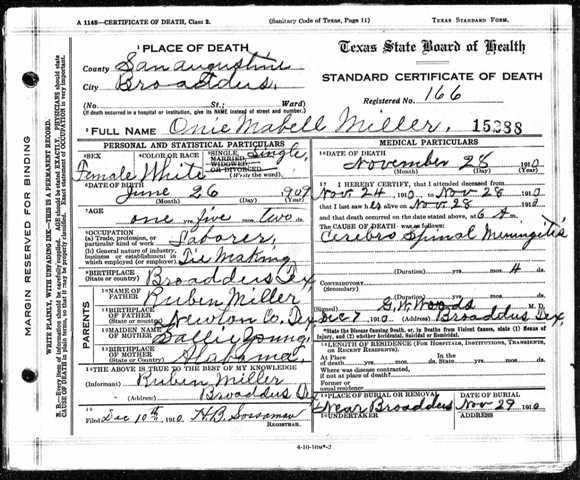 A 1145—CERTIFICATE OF DEATH, Class B. (Sanitary Code of Texas, Page 11) TEXAS STANDARD FORM.
MARGIN RESERVED FOR BINDING
WRITE PLAINLY, WITH UNFADING INK—THIS IS A PERMANENT RECORD.
PLACE OF DEATH
County San augustine
City Broaddus.
(No. St.; Ward)
(If death occurred in a hospital or institution, give its NAME instead of street and number.)
Texas State Board of Health
STANDARD CERTIFICATE OF DEATH
Registered No. 166
FULL NAME Onie Mabell Miller. 15238
PERSONAL AND STATISTICAL PARTICULARS
SEX Female
COLOR OR RACE White
SINGLE, MARRIED, WIDOWED, OR DIVORCED Single,
(Write the word)
DATE OF BIRTH
June 26 909
(Month) (Day) (Year)
AGE
one yrs. five mos. two ds.
OCCUPATION
(a) Trade, profession, or particular kind of work Laborer,
(b) General nature of industry, business or establishment in which employed (or employer) Tie Making
BIRTHPLACE
(State or country) Broaddus Tex
PARENTS
NAME OF FATHER Ruben Miller
BIRTHPLACE OF FATHER
(State or country) Newton Co, Tex
MAIDEN NAME OF MOTHER Sallie Young
BIRTHPLACE OF MOTHER
(State or country) Alabama.
THE ABOVE IS TRUE TO THE BEST OF MY KNOWLEDGE
(Informant) Ruben Miller
(Address) Broaddus Tex
Filed Dec 10th, 1910 H.B. Sossaman
REGISTRAR.
MEDICAL PARTICULARS
DATE OF DEATH
November 28 1910
(Month) (Day) (Year)
I HEREBY CERTIFY, that I attended deceased from
Nov 24 1910, to Nov 28 1910
that I last saw her alive on Nov 28 1910
and that death occurred on the date stated above, at 6 m.
The CAUSE OF DEATH was as follows:
Cerebro Spinal Meningitis
(Duration) yrs. mos. 4 ds.
CONTRIBUTORY
(Secondary)
(Duration) yrs. mos. ds.
Signed G. W. Woods M. D.
Dec 7 1910 (Address) Broaddus Tex,
*State the Disease Causing Death, or, in Deaths from Violent Causes, state (1) Means of Injury, and (2) whether Accidental, Suicidal, or Homicidal.
LENGTH OF RESIDENCE (For Hospitals, Institutions, Transients, or Recent Residents).
At Place of death yrs. mos. ds. In the State yrs. mos. ds.
Where was disease contracted, if not at place of death?
Former or usual residence
PLACE OF BURIAL OR REMOVAL
Near Broaddus
DATE OF BURIAL
Nov 29 1910
UNDERTAKER ADDRESS
4-10-10m*-2